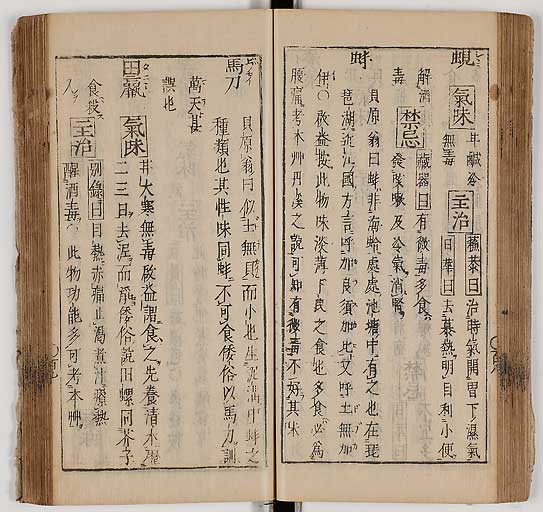 蜆 氣味 甘鹹冷無毒 主治 蘓恭曰治時氣開胃下濕氣
日華曰去暴熱明目利小便
解酒毒 禁忌 藏器曰有微毒多食
發嗽及冷氣消腎
蚌 貝原翁曰蚌非海蛤處處池塘中有之也在琵
琶湖近江國方言呼加良須加比又呼土無加
伊〇啟益按此物味淡薄下民之食也多食必爲
腹痛考本艸丹溪之説可知有微毒不好其味
馬刀 貝原翁曰似土無貝而小也生溝中蚌之
種類也其性味同蚌不可食倭俗以馬刀訓
萬天甚誤也
田蠃 氣味 甘大寒無毒啟益謂食之先養清水
二三日去泥而静倭俗説田螺同芥子
食殺人 主治 別錄曰目熱赤痛止渴煮汁療熱
醒酒毒〇此物功能多可考本艸